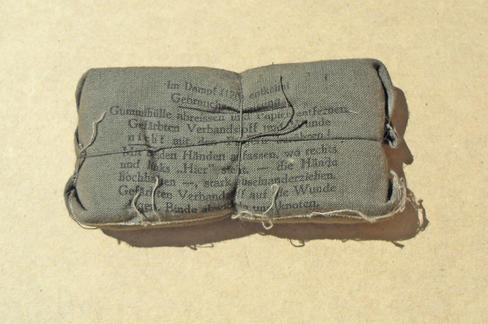 Im Dampf (120 entkeimt
Gebrauchs
Gummihülle abreissen und Papier entfernen.
Gefärbten Verbandstoff und Wunde
nicht mit den berühren!
Mit beiden Händen anfassen, wo rechts
und links „Hier" steht, — die Hände
hochhalten —, stark auseinanderziehen.
Gefärbten Verbandstoff auf die Wunde
legen, Binde knoten.